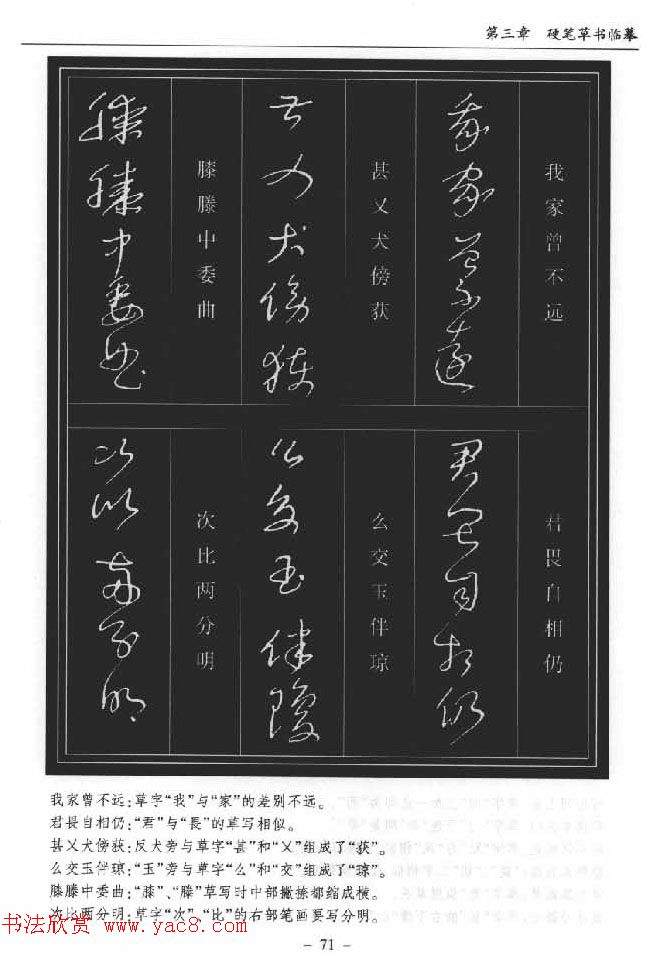 第三章 硬笔草书临摹
我家曾不远
我家曾不远
甚又犬傍获
甚又犬傍获
膝滕中委曲
膝滕中委曲
君畏自相仍
君畏自相仍
么交玉伴琼
么交玉伴琼
次比两分明
次比两分明
我家曾不远:草字“我”与“家”的差别不远。
君畏自相仍:“君”与“畏”的草写相似。
甚又犬傍获:反犬旁与草字“甚”和“又”组成了“获”。
么交玉伴琼:“玉”旁与草字“么”和“交”组成了“琼”。
膝滕中委曲:“膝”、“滕”草写时中部撇捺都缩成横。
次比两分明:草字“次”、“比”的右部笔画要写分明。
书法欣赏 www.yac8.com
- 71 -